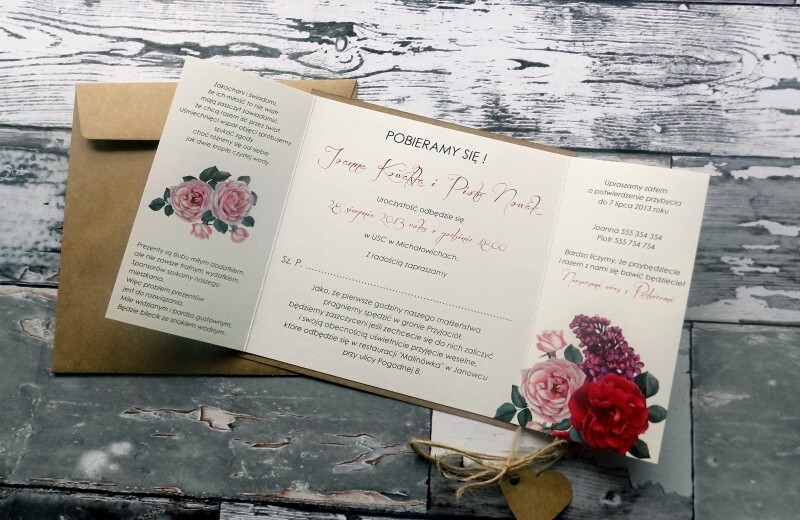 Zakochani i świadomi,
że ich miłość to nie wiatr
mają zaszczyt zawiadomić,
że chcą razem iść przez świat.
Uśmiechnięci wpół objęci spróbujemy
szukać zgody,
choć różnimy się od siebie,
jak dwie krople czystej wody.
Prezenty są ślubu miłym dodatkiem,
ale nie zawsze trafnym wydatkiem.
Sponsorów szukamy naszego
mieszkania,
Więc problem prezentów
jest do rozwiązania.
Mile widzianym i bardzo gustownym,
Będzie bilecik ze znakiem wodnym.
POBIERAMY SIĘ !
Joanna Kowalska i Piotr Nowak
Uroczystość odbędzie się
28 sierpnia 2013 roku o godzinie 18:00
w USC w Michałowicach.
Z radością zapraszamy
Sz. P. ..........................................................
Jako, że pierwsze godziny naszego małżeństwa
pragniemy spędzić w gronie Przyjaciół,
będziemy zaszczyceni jeśli zechcecie się do nich zaliczyć
i swoją obecnością uświetnicie przyjęcie weselne,
które odbędzie się w restauracji "Malinówka" w Janowcu
przy ulicy Pogodnej 8.
Upraszamy zatem
o potwierdzenie przybycia
do 7 lipca 2013 roku
Joanna 555 354 354
Piotr 555 754 754
Bardzo liczymy, że przybędziecie
i razem z nami się bawić będziecie!
Narzeczeni wraz z Rodzicami